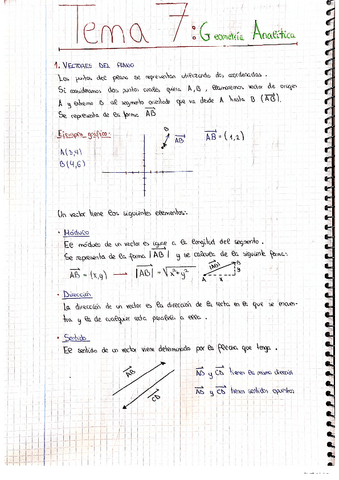 Tema 7: Geometría Analítica
1. VECTORES DEL PLANO
Los puntos del plano se representan utilizando dos coordenadas.
Si consideramos dos puntos cuales quiera A, B, llamaremos vector de origen
A y extremo B al segmento orientado que va desde A hasta B (AB).
Se representa de la forma AB
Ejemplo gráfico:
A(3,4)
B(4,6)
AB
AB = (1,2)
Un vector tiene los siguientes elementos:
· Módulo
El módulo de un vector es igual a la longitud del segmento.
Se representa de la forma |AB| y se calcula de la siguiente forma:
AB = (x,y) → |AB| = √x²+y²
|AB|
A
B
x
y
· Dirección
La dirección de un vector es la dirección de la recta en la que se encuen-
tra y la de cualquier recta paralela a esta.
· Sentido
El sentido de un vector viene determinado por la flecha que tenga.
AB
CD
AB y CD tienen la misma dirección
AB y CD tienen sentidos opuestos